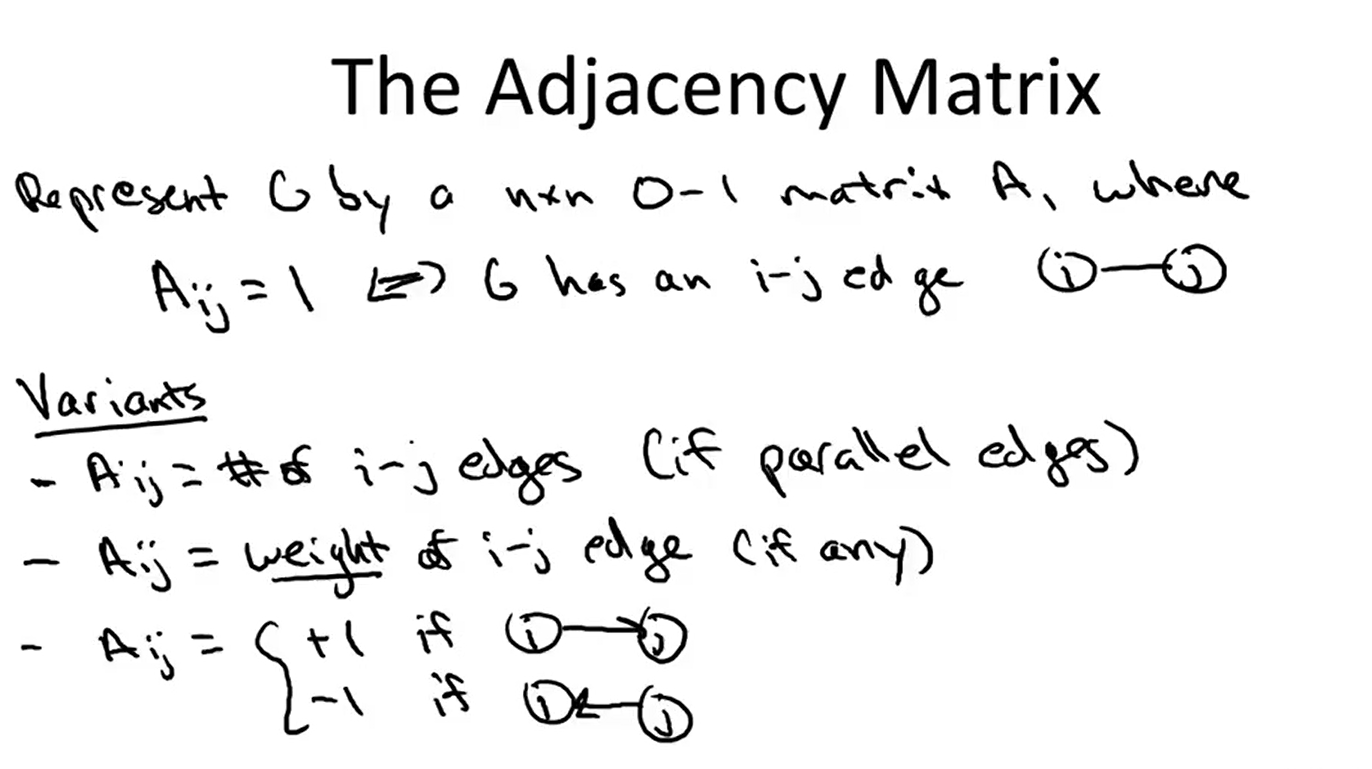 The Adjacency Matrix
Represent G by a n×n 0-1 matrix A, where
Aij = 1 <=> G has an i-j edge (i)—(j)
Variants
- Aij = # of i-j edges (if parallel edges)
- Aij = weight of i-j edge (if any)
- Aij = { +1 if (i)→(j)
-1 if (i)←(j)